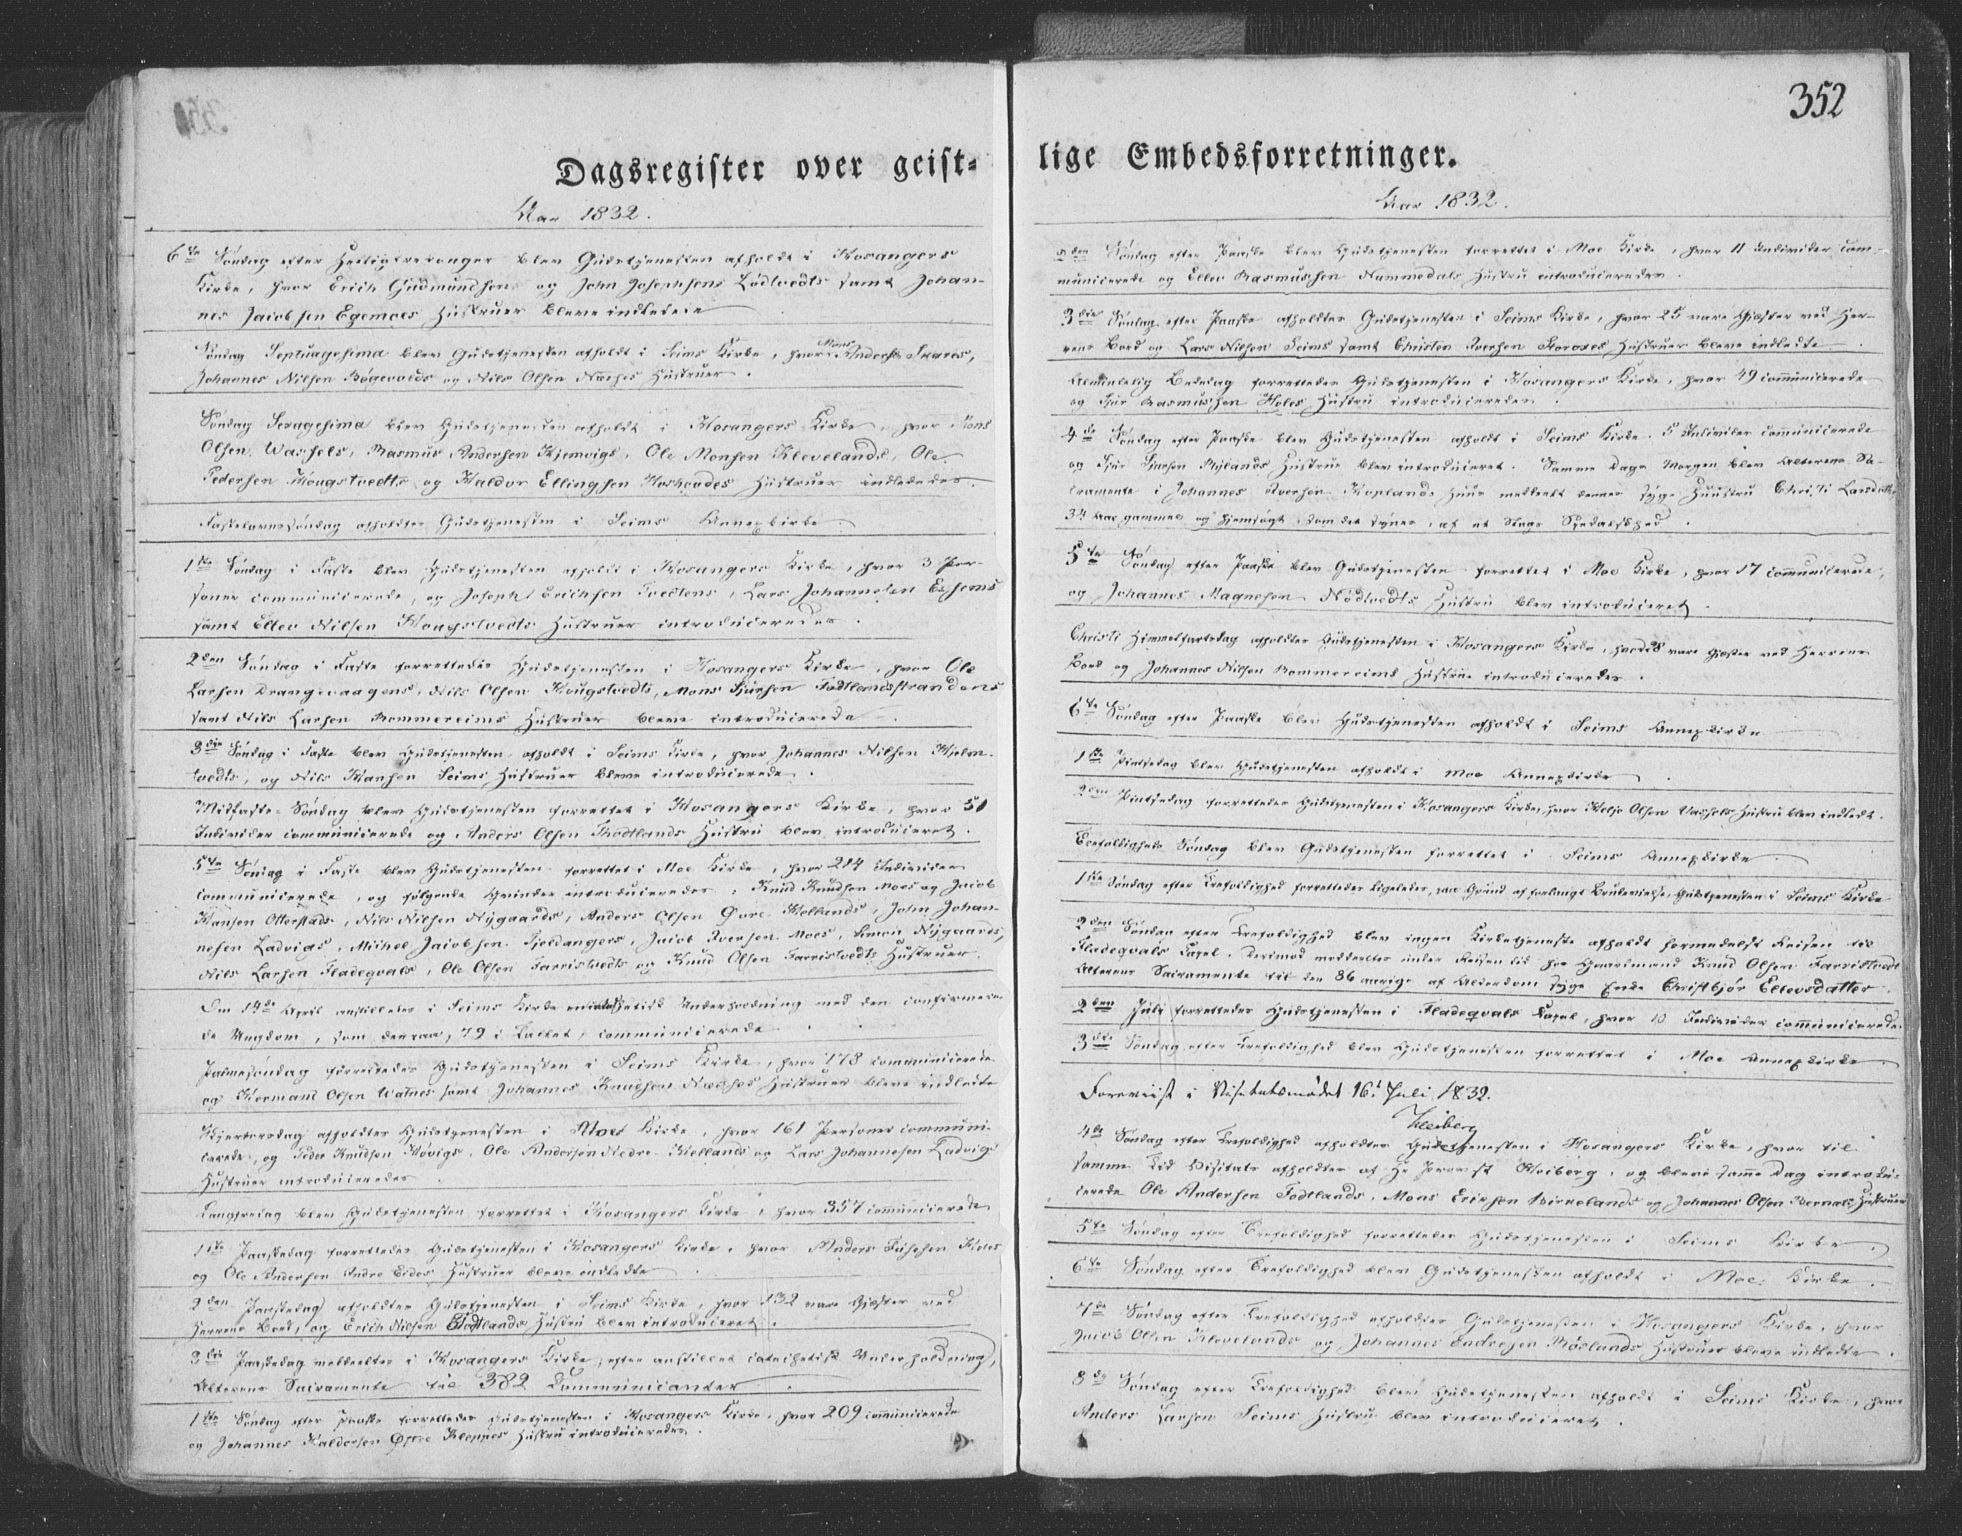 352
Dagsregister over geist-
lige Embedsforretninger.
Aar 1832.
6te Søndag efter Helligtrekonger blev Gudstjenesten afholdt i Hosangers
Kirke, hvor Erich Gudmundsens og John Josephsens Lodtvedts samt Johan-
nes Jacobsen Egemoes Hustruer bleve indledede
Søndag Septuagesima blev Gudstjenesten afholdt i Seims Kirke, hvor Mons Anders
Johannes Nilsen Bøgevolds og Nils Olsen Næsses Hustruer.
Søndag Sexagesima blev Gudstjenesten afholdt i Hosangers Kirke, hvor Mons
Olsen Wassels, Rasmus Andersen Hjemvigs, Ole Monsen Klevelands, Ole
Pedersen Hougstvedts og Haldor Ellingsen Hustruer indlededes.
Fastelavnssøndag afholdtes Gudstjenesten i Seims Annexkirke
1ste Søndag i Faste blev Gudstjenesten afholdt i Hosangers Kirke, hvor 3 Per-
soner communicerede, og Joseph Erichsen Tvedtens, Lars Johannesen
samt Ellev Nilsen Hougstvedts Hustruer introduceredes.
2den Søndag i Faste forrettedes Gudstjenesten i Hosangers Kirke, hvor Ole
Larsen Drangevaagens, Nils Olsen Hougstvedts, Mons Sjursen Todtlandsstrandens
samt Nils Larsen Rommereims Hustruer bleve introducerede.
3die Søndag i Faste blev Gudstjenesten afholdt i Seims Kirke, hvor Johannes Nilsen Hjelm-
tvedts, og Nils Hansen Seims Hustruer bleve introducerede.
Midfaste-Søndag blev Gudstjenesten forrettet i Hosangers Kirke, hvor 51
Individer communicerede og Anders Olsen Todtlands Hustru blev introduceret.
5te Søndag i Faste blev Gudstjenesten forrettet i Moe Kirke, hvor 214 Individer
communicerede, og følgende Qvinder introduceredes: Knud Knudsen Moes og Jacob
Hansen Otterstads, Nils Nilsen Nygaards, Anders Olsen Øvre-Helland, John Johan-
nesen Ladvigs, Michel Jacobsen Fjeldangers, Jacob Iversen Moes, Simon Nygaards,
Nils Larsen Fladeqvals, Ole Olsen Farristvedts og Knud Olsen Farristvedts Hustruer.
Den 14de April anstilledes i Seims Kirke en catechetisk Underholdning med den confirmere-
de Ungdom, som derpaa, 79 i Tallet, communicerede.
Palmesøndag forrettedes Gudstjenesten i Seims Kirke, hvor 178 communicerede
og Hermand Olsen Watnes samt Johannes Knudsen Næsses Hustruer bleve indledte
Skjertorsdag afholdtes Gudstjenesten i Moes Kirke, hvor 161 Personer communi-
cerede, og Peder Knudsen Høvigs, Ole Andersen Nedre-Hellands og Lars Johannesen Ladvigs
Hustruer introduceredes.
Langfredag blev Gudstjenesten forrettet i Hosangers Kirke, hvor 357 communicerede
1ste Paaskedag forrettedes Gudstjenesten i Hosangers Kirke, hvor Anders
og Ole Andersen Indre Eides Hustruer bleve indledte
2den Paaskedag afholdtes Gudstjenesten i Seims Kirke, hvor 132 vare Gjæster ved
Herrens Bord, og Erich Nilsen Todtlands Hustru blev introduceret.
3die Paaskedag meddeeltes i Hosangers Kirke, efter anstillet catechetisk Underholdning,
Alterens Sacramente til 382 Communicanter.
1ste Søndag efter Paaske forrettedes Gudstjenesten i Hosangers Kirke, hvor 209 communicerede
og Johannes Haldorsen Øvre Kleppes Hustru introduceredes.
Aar 1832.
2den Søndag efter Paaske blev Gudstjenesten forrettet i Moe Kirke, hvor 11 Individer com-
municerede og Ellev Rasmussen Nummedals Hustru introduceredes.
3die Søndag efter Paaske afholdtes Gudstjenesten i Seims Kirke, hvor 25 vare Gjæster ved Her-
rens Bord og Lars Nilsen Seims samt Christen Iversen Hustruer bleve indledte.
Almindelig Bededag forrettedes Gudstjenesten i Hosangers Kirke, hvor 49 communicerede
og Sjur Rasmussen Holes Hustru introduceredes.
4de Søndag efter Paaske blev Gudstjenesten afholdt i Seims Kirke. 5 Individer communicerede
og Sjur Hustrue blev introduceret. Samme Dags Morgen blev Alterens Sa-
cramente i Johannes Iversen Huus meddeelt dennes syge Huustru Christi Larsdatter
34 Aar gammel og hjemsøgt, som det synes, af et Slags Spedalskhed.
5te Søndag efter Paaske blev Gudstjenesten forrettet i Moe Kirke, hvor 17 communicerede,
og Johannes Magnesen Nødtvedts Hustru blev introduceret.
Christi Himmelfartsdag afholdtes Gudstjenesten i Hosangers Kirke, hvor vare Gjæster ved Herrens
Bord og Johannes Nilsen Rommereims Hustrue introduceredes.
6te Søndag efter Paaske blev Gudstjenesten afholdt i Seims Annexkirke
1ste Pintsedag blev Gudstjenesten afholdt i Moe Annexkirke.
2den Pintsedag forrettedes Gudstjenesten i Hosangers Kirke, hvor Helje Olsen Vassels Hustru blev indledt.
Trefoldigheds Søndag blev Gudstjenesten forrettet i Seims Annexkirke
1ste Søndag efter Trefoldighed forrettedes ligeledes, paa Grund af forlangt Brudevielse, Gudstjenesten i Seims Kirke
2den Søndag efter Trefoldighed blev ingen Kirketjeneste afholdt formedelst Reisen til
Fladeqvals Capel. Derimod meddeeltes under Reisen hid hos Knud Olsen Farristvedt
Alterens Sacramente til den 86 aarige af Alderdom syge Enke Christbjør Ellevsdatter.
2den Juli forrettedes Gudstjenesten i Fladeqvals Capel, hvor 10 Individer communicerede.
3die Søndag efter Trefoldighed blev Gudstjenesten forrettet i Moe Annexkirke
Foreviist i Visitatsmødet 16de Juli 1832.
Heiberg
4de Søndag efter Trefoldighed afholdtes Gudstjenesten i Hosangers Kirke, hvor til
samme Tid Visitats afholdtes af Hr Provst Heiberg, og bleve samme Dag introdu-
cerede Ole Andersen Todtlands, Mons Ericsen Birkelands og Johannes Olsen Bernæs Hustruer
5te Søndag efter Trefoldighed forrettedes Gudstjenesten i Seims Kirke.
6te Søndag efter Trefoldighed blev Gudstjenesten afholdt i Moe Kirke.
7de Søndag efter Trefoldighed afholdtes Gudstjenesten i Hosangers Kirke, hvor
Jacob Olsen Klevelands og Johannes Endresen Røslands Hustruer bleve indledte.
8de Søndag efter Trefoldighed blev Gudstjenesten afholdt i Seims Kirke, hvor
Anders Larsen Seims Hustru blev introduceret.